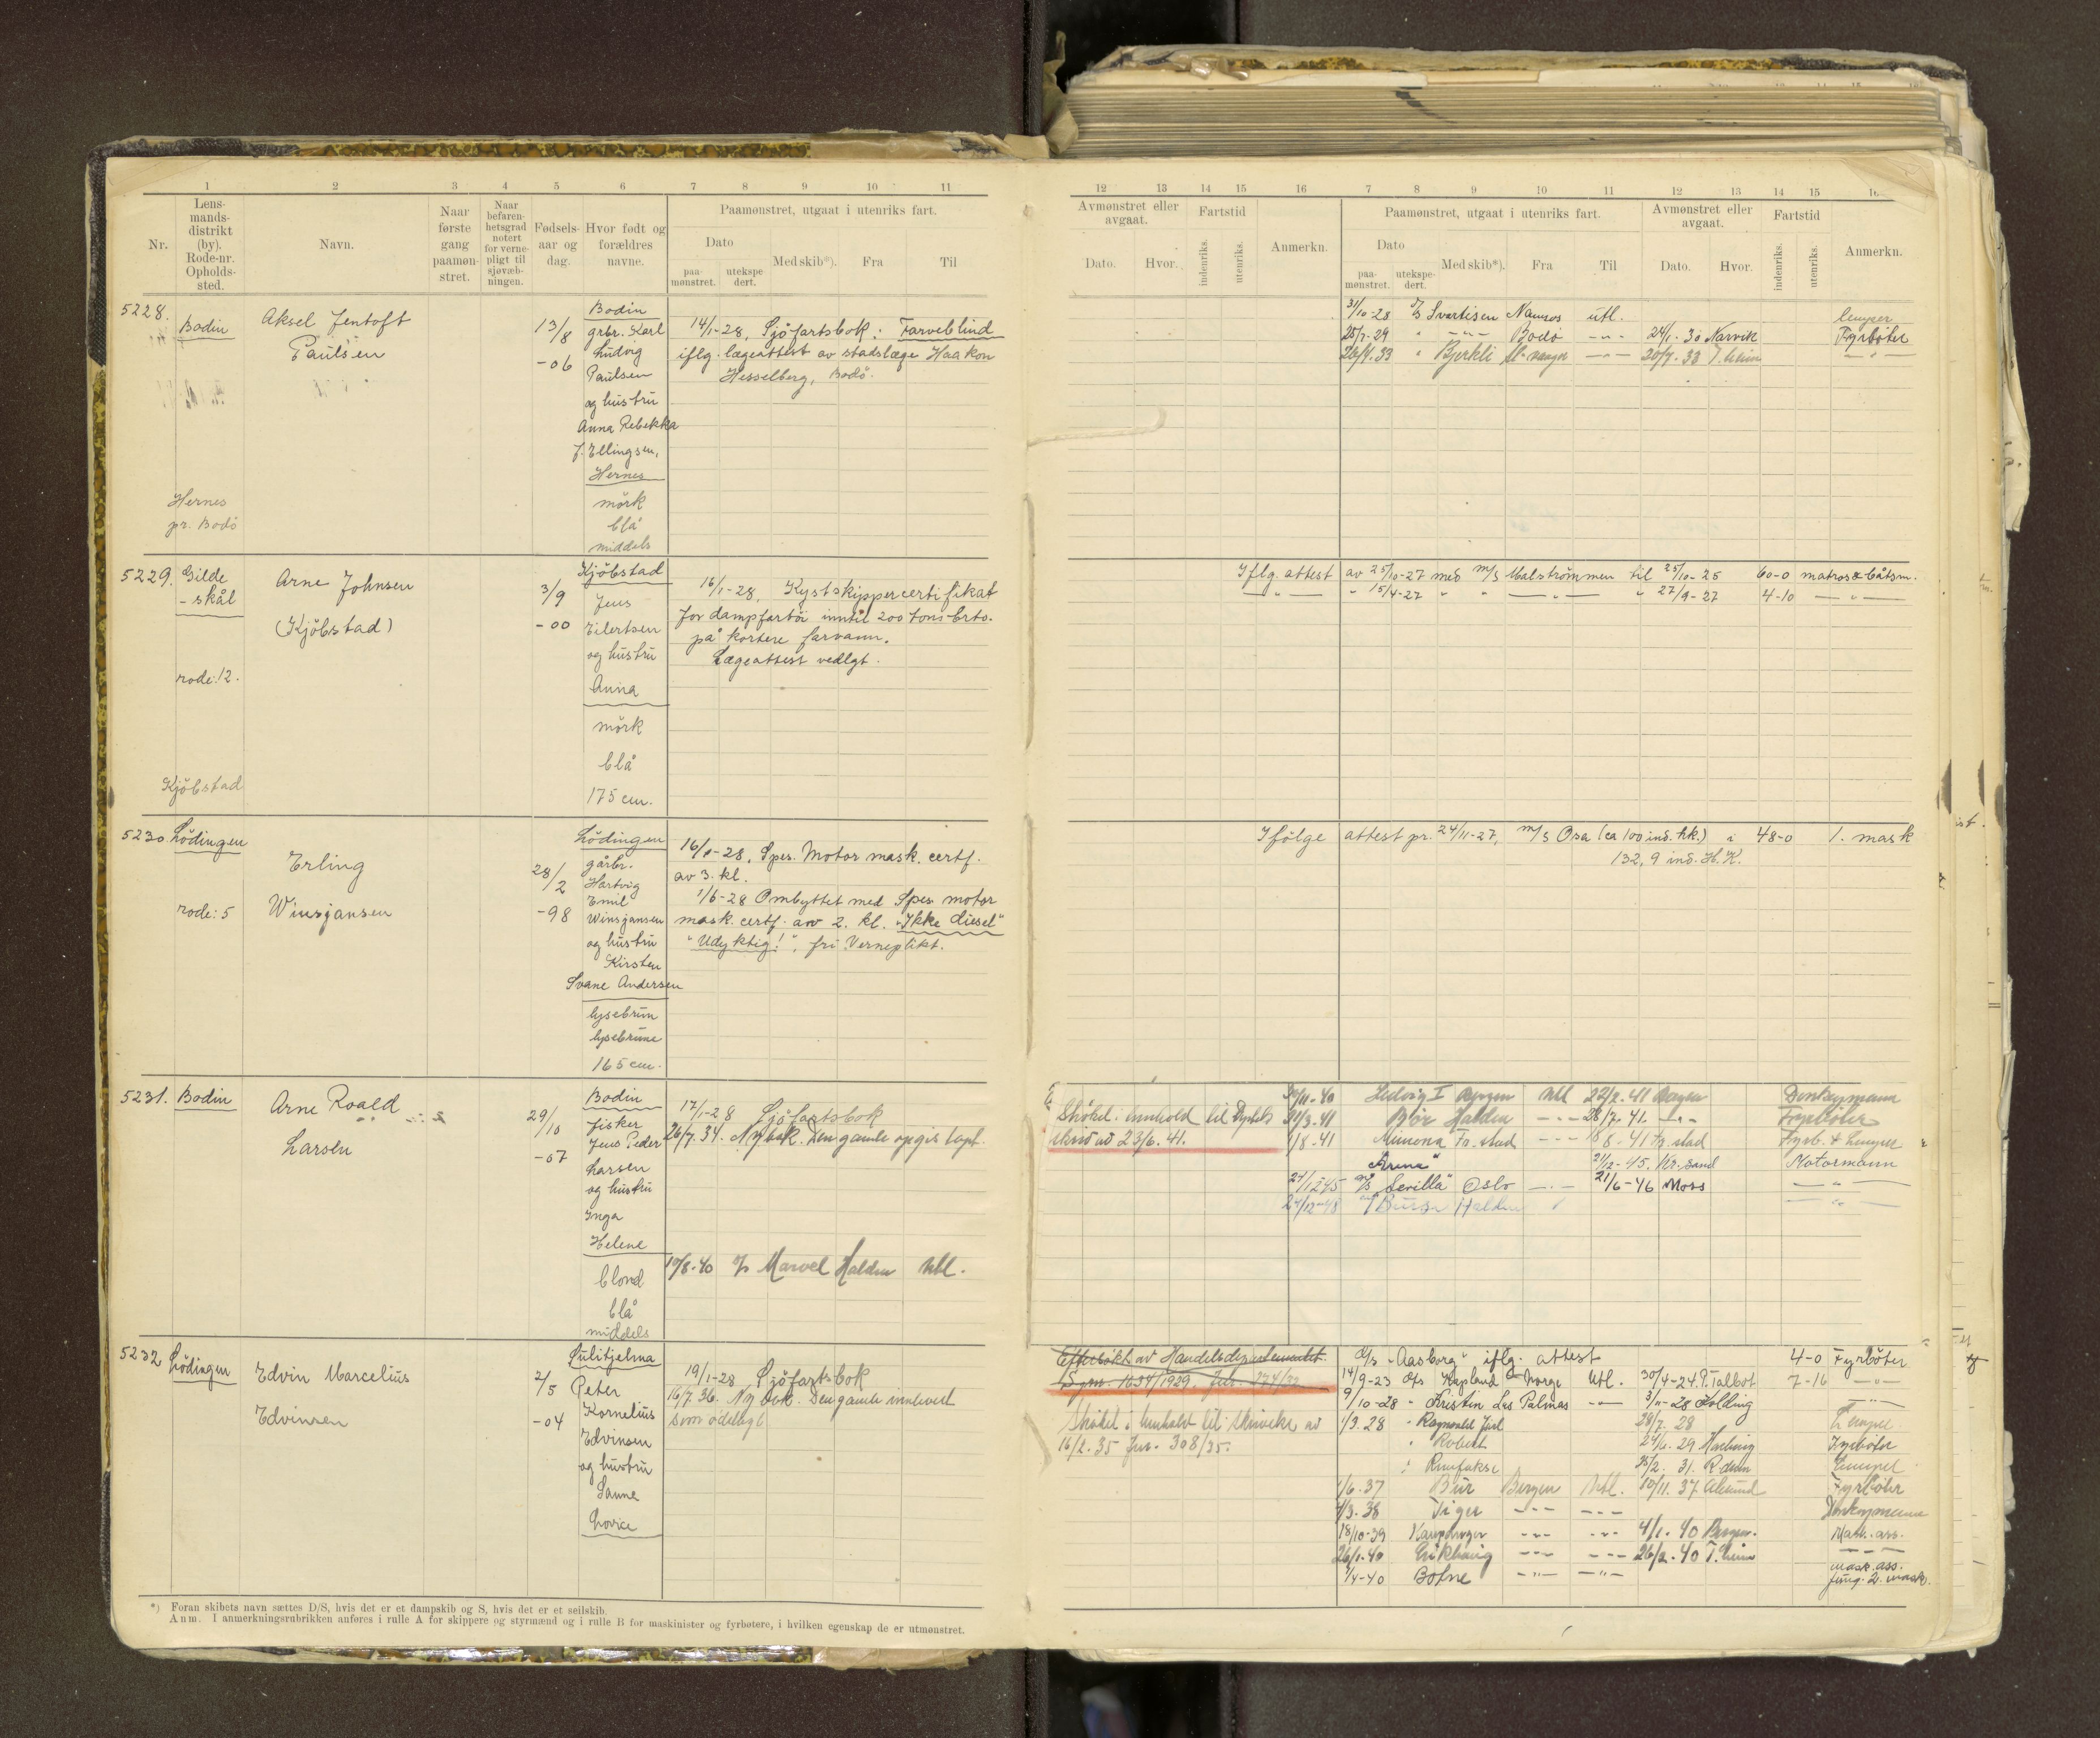 1 2 3 4 5 6 7 8 9 10 11
Nr.
Lens-
mands-
distrikt
(by).
Rode-nr.
Opholds-
sted.
Navn.
Naar
første
gang
paamøn-
stret.
Naar
befaren-
hetsgrad
notert
for verne-
pligt til
sjøvæb-
ningen.
Fødsels-
aar og
dag.
Hvor født og
forældres
navne.
Paamønstret, utgaat i utenriks fart.
Dato
paa-
mønstret.
utekspe-
dert.
Med skib*).
Fra
Til
5228.
Bodin
Hernes
pr. Bodö
Aksel Jentoft
Paulsen
13/8
-06
Bodin
grbr. Karl
Ludvig
Paulsen
og hustru
Anna Rebekka
J. Ellingsen,
Hernes
mörk
blå
middels
14/1-28, Sjöfartsbok: Farveblind
iflg. lægeattest av stadslæge Haakon
Hesselberg, Bodö.
5229. Gilde
-skål
rode: 12.
Kjöbstad
Arne Johnsen
(Kjöbstad)
3/9
-00
Kjöbstad
Jens
Eilertsen
og hustru
Anna
mörk
blå
175 cm.
16/1-28, Kystskippercertifikat
for dampfartöi inntil 200 tons brto.
på kortere farvann.
Lægeattest vedlgt.
5230. Lödingen
rode: 5
Erling
Winsjansen
28/2
-98
Lödingen
gårbr.
Hartvig
Emil
Winsjansen
og hustru
Kirsten
Svane Andersen
lysebrun
lysebrune
165 cm.
16/1-28, Spes. Motor mask. certf.
av 3. kl.
1/6-28 Ombyttet med Spes motor
mask. certf. av 2. kl. "Ikke diesel"
"Udyktig!", fri Verneplikt.
5231. Bodin
Arne Roald
Larsen
29/10
-07
Bodin
fisker
Jens Peder
Larsen
og hustru
Inga
Helene
blond
blå
middels
17/1-28 Sjöfartsbok
26/7. 34. Ny bok. Den gamle opgis tapt.
10/8-40 Marvel Halden Utl.
5232 Lödingen
Edvin Marcelius
Edvinsen
2/5
-04
Sulitjelma
Peter
Kornelius
Edvinsen
og hustru
Sanne
Lovise
19/1-28 Sjöfartsbok
16/7. 36. Ny bok. Den gamle innlevert
som ödelagt
*) Foran skibets navn sættes D/S, hvis det er et dampskib og S, hvis det er et seilskib.
Anm. I anmerkningsrubrikken anføres i rulle A for skippere og styrmænd og i rulle B for maskinister og fyrbøtere, i hvilken egenskap de er utmønstret.
12 13 14 15 16 7 8 9 10 11 12 13 14 15 16
Avmønstret eller
avgaat.
Dato.
Hvor.
Fartstid
indenriks.
utenriks.
Anmerkn.
Paamønstret, utgaat i utenriks fart.
Dato
paa-
mønstret.
utekspe-
dert.
Med skib*).
Fra
Til
Avmønstret eller
avgaat.
Dato.
Hvor.
Fartstid
indenriks.
utenriks.
Anmerkn.
31/10-28 Svartisen Namsos utl. lemper
25/7-29 " -"- Bodö -"- 24/1-30 Narvik Fyrböter
26/4. 33 " Bjerkli -"- 20/7. 33 T.heim -"-
Iflg. attest av 25/10-27 med m/s Malströmmen til 25/10-25 60-0 matros & båtsm.
-"- " 15/4-27 " " -"- " 27/9-27 4-10 -"-
Ifölge attest pr. 24/11-27, m/s Osa (ca 100 ind. hk.) i 48-0 1. mask
132,9 ind. H.K.
11-40 Hedvig I Bergen Utl 22/2. 41 Bergen Donkeymann
Skökel: innhold til
skriv av 23/6. 41.
31/3. 41 Björ Halden -"- 28/7. 41. -"- Fyrböter
1/8-41 Mimona Fr.stad -"- 8-41 Fr.stad Fyrb. & Lemper
"Arena" 21/12-45. Kr.sand Motormann
"Sevilla" Oslo -"- 21/6-46 Moss -"-
27/12-48 Halden -"-
Efterlökt av Handelsdepartementet.
1634/1929. Jur. 274/32
i henhold til skrivelse av
16/2. 35 Jur. 308/35.
d/s "Aasborg" iflg. attest 4-0 Fyrböter
14/9-23 d/s Kapland Norge Utl. 30/4-24. P. Talbot 7-16 -"-
9/10-28 " Kristin Las Palmas -"- 3/11-28 Kolding -"-
1/3. 28 " Ragnvald Jarl 28/7. 28 Lemper
" Robert 24/6. 29 Fyrböter
" Rimfakse 2. 31. R-dam Lemper
1/6. 37 Bur Bergen Utl. 10/11. 37. Ålesund Fyrböter
1/3. 38 Tiger -"- -"- Donkeymann
18/10-39 Kaupanger -"- -"- 4/1. 40 Bergen. Mask. ass.
26/1-40 Eikhaug -"- -"- 26/2. 40 T.heim -"-
1/4-40 Botne -"- -"- mask. ass.
fung. 2. mask.